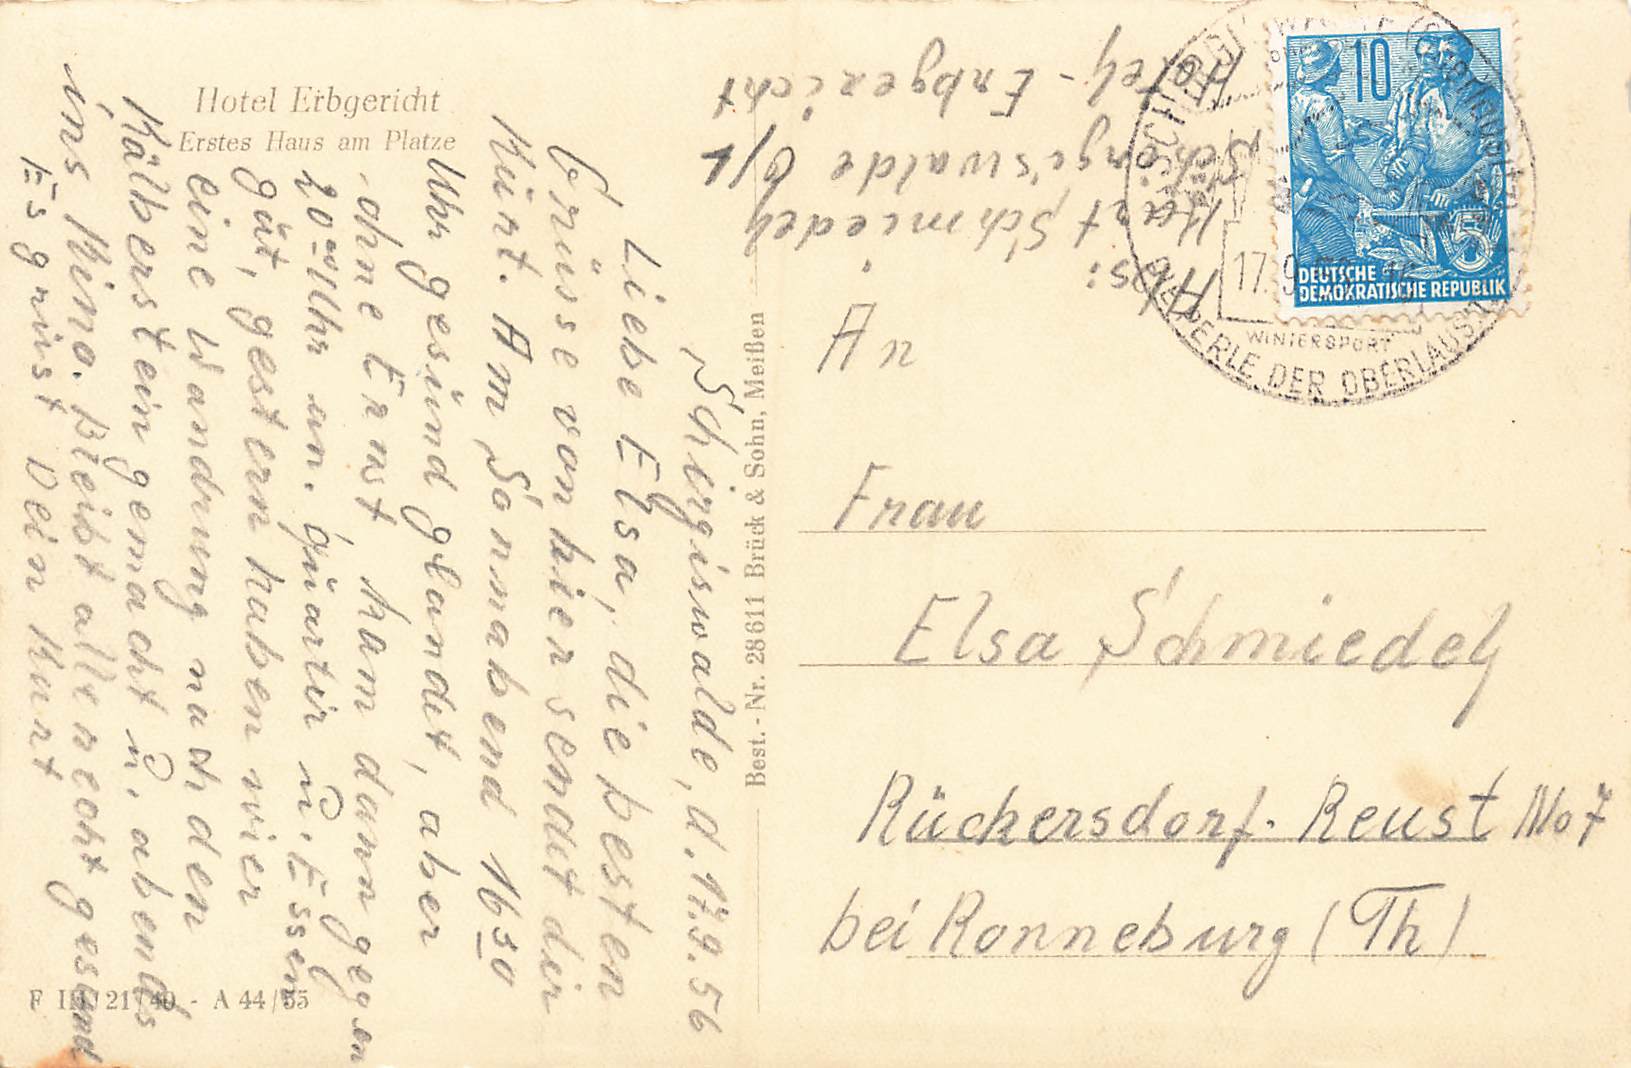 Hotel Erbgericht
Erstes Haus am Platze
Schirgiswalde, d. 17.9.56
Liebe Elsa, die besten
Grüsse von hier sendet dir
Kurt. Am Sonnabend 16 30
Uhr gesund glandet, aber
ohne Ernst kam dann gegen
20 Uhr an. Quartir u. Essen
gut, gestern haben wier
eine Wandrung nach den
Kälberstein gemacht u. abends
ins Kino. Bleibt alle recht gesund
Es grüst Dein Kurt
F III/21/40 - A 44/55
Best.-Nr. 28611 Brück & Sohn, Meißen
Abs:
Kurt Schmiedel
Schirgiswalde b/1
Hotel-Erbgericht
10
5
DEUTSCHE
DEMOKRATISCHE REPUBLIK
17.9.
WINTERSPORT
PERLE DER OBERLAUSITZ
An
Frau
Elsa Schmiedel
Rückersdorf-Reust No 7
bei Ronneburg (Th)